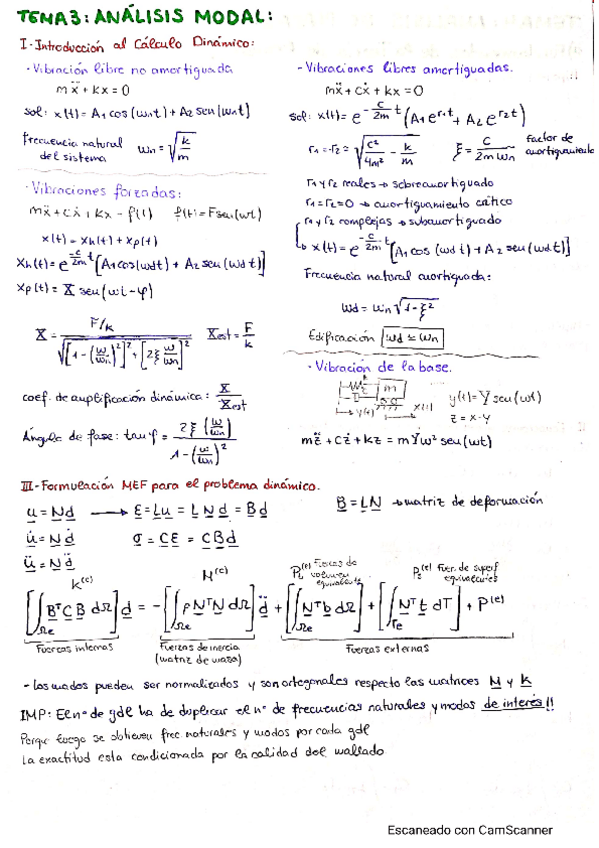 TEMA 3: ANÁLISIS MODAL:
I-Introducción al Cálculo Dinámico:
- Vibración libre no amortiguada
mẍ + kx = 0
sol: x(t) = A₁ cos(ωnt) + A₂ seu(ωnt)
Frecuencia natural del sistema ωn = √(k/m)
- Vibraciones libres amortiguadas.
mẍ + cẋ + kx = 0
sol: x(t) = e^(-c/2m t) (A₁e^(r₁t) + A₂e^(r₂t))
r₁ = -r₂ = √(c²/4m² - k/m) ξ = c/(2mωn) factor de amortiguamiento
r₁ y r₂ reales → sobreamortiguado
r₁ = r₂ = 0 → amortiguamiento crítico
r₁ y r₂ complejas → subamortiguado
x(t) = e^(-c/2m t) [A₁ cos(ωd t) + A₂ seu(ωd t)]
Frecuencia natural amortiguada:
ωd = ωn √(1-ξ²)
Edificación ωd ≃ ωn
- Vibraciones forzadas:
mẍ + cẋ + kx = f(t) f(t) = F seu(ωt)
x(t) = xh(t) + xp(t)
xh(t) = e^(-c/2m t) [A₁ cos(ωdt) + A₂ seu(ωd t)]
xp(t) = X seu(ωt-φ)
X = (F/k) / √([1-(ω/ωn)²]² + [2ξ ω/ωn]²) Xest = F/k
coef. de amplificación dinámica: X/Xest
Ángulo de fase: tan φ = 2ξ(ω/ωn) / (1-(ω/ωn)²)
- Vibración de la base.
m
y(t) x(t)
y(t) = Y seu(ωt)
z = x-y
mz̈ + cż + kz = mYω² seu(ωt)
III-Formulación MEF para el problema dinámico.
u = Nd → ε = Lu = LNd = Bd B = LN → matriz de deformación
u̇ = Nḋ σ = Cε = CBd
ü = Nd̈
K^(e) M^(e) P₁^(e) Fuerzas de volumen equivalente P₂^(e) Fuer. de superf equivalentes
[∫∫Ωe BᵀCB dΩ] d = -[∫∫Ωe ρNᵀN dΩ] d̈ + [∫∫Ωe Nᵀb dΩ] + [∫Γe Nᵀt dΓ] + P^(e)
Fuerzas internas Fuerzas de inercia Fuerzas externas
(matriz de masa)
- Los modos pueden ser normalizados y son ortogonales respecto las matrices M y K
IMP: El nº de gdl ha de duplicar el nº de frecuencias naturales y modos de interés!!
Porque luego se obtienen frec naturales y modos por cada gdl
La exactitud esta condicionada por la calidad del mallado
Escaneado con CamScanner